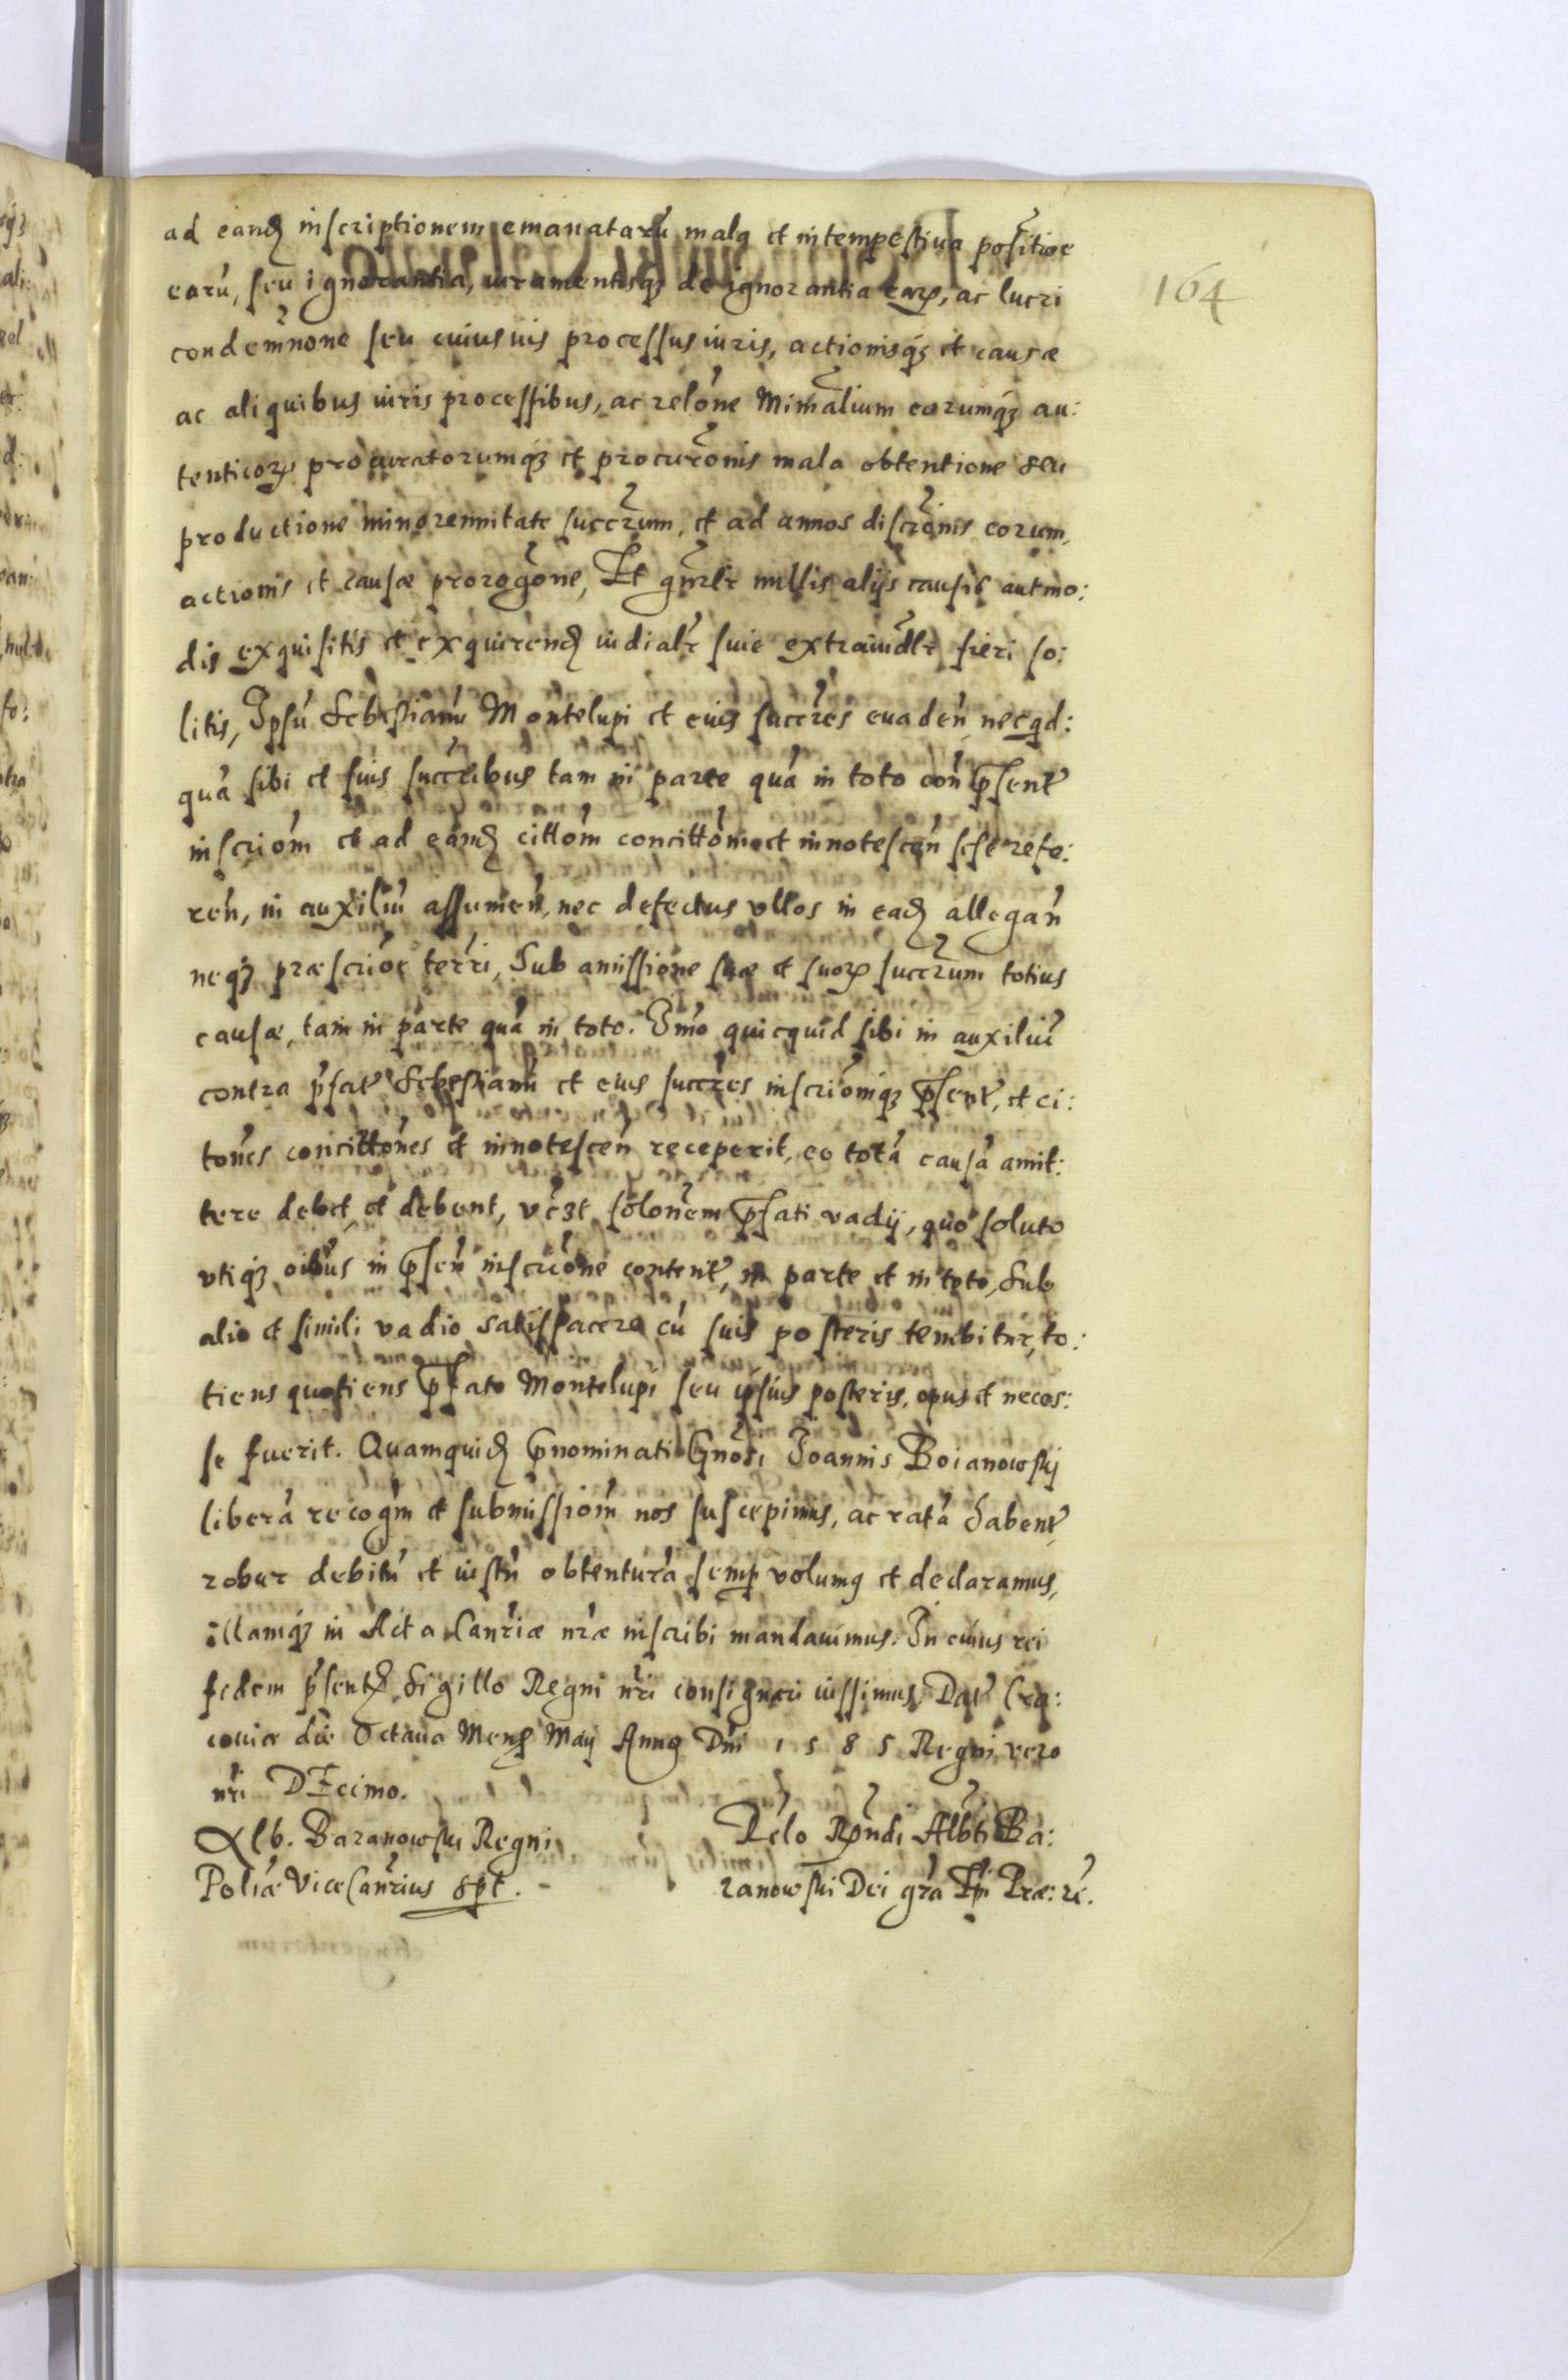 ad eand inscriptionem emanatarũ mala et intempestiva positioe
earũ, seu ignorantia, iuramentisq; de ignorantia earꝝ, ac lucri
condemnone seu cuiusuis processus iuris, actionisq; et causæ
ac aliquibus iuris processibus, ac relone Minralium eorumq; au:
tenticorꝝ procuratorumq; et procuronis mala obtentione seu
productione minorennitate succrum, et ad annos discronis eorum,
actionis et causæ prorogone, Et gnrlr nullis alijs causis aut mo:
dis exquisitis et exquirend iudialr siue extraiudlr fieri so:
litis, Ipsũ Sebastianũ Montelupi et eius succres euaden, necqd:
quã sibi et suis succribus tam in parte quã in toto con psent
inscriom et ad eand cittom concittom et innotescen sese refe:
ren, in auxiliũ assumen, nec defectus vllos in ead allegan
neq; præscrioe terri, Sub amissione suæ et suorꝝ succrum totius
causæ, tam in parte quã in toto. Imo quicquid sibi in auxiliũ
contra pfat Sebastianũ et eius succres inscriomq; psent, et ci:
tones concittones et innotescen receperit, eo totã causã amit:
tere debet, et debent, vest solonem pfati vadij, quo soluto
vtiq; oibus in psen inscrione content, in parte et in toto, Sub
alio et simili vadio satisfacere cũ suis posteris tenebitur, to:
tiens quotiens pfato Montelupi seu ipsius posteris, opus et neces:
se fuerit. Quamquid pnominati Gnosi Joannis Boianowskj
liberã recogm et submissiom nos suscepimus, ac ratã habent,
robur debitũ et iustũ obtenturã semp volumꝯ et declaramus,
illamq; in Acta Canriæ nræ inscribi mandauimus. In cuius rei
fidem psent Sigillo Regni nri consignari iussimus. Dat Cra:
couiæ die Octaua Mens Maij Anno Dni 1585 Regni vero
nri DEcimo.
Alb. Baranowski Regni
Poliæ ViceCanrius spt.
Relo Rpndi Albti Ba:
ranowski Dei gra Epi Præ: rc.
164